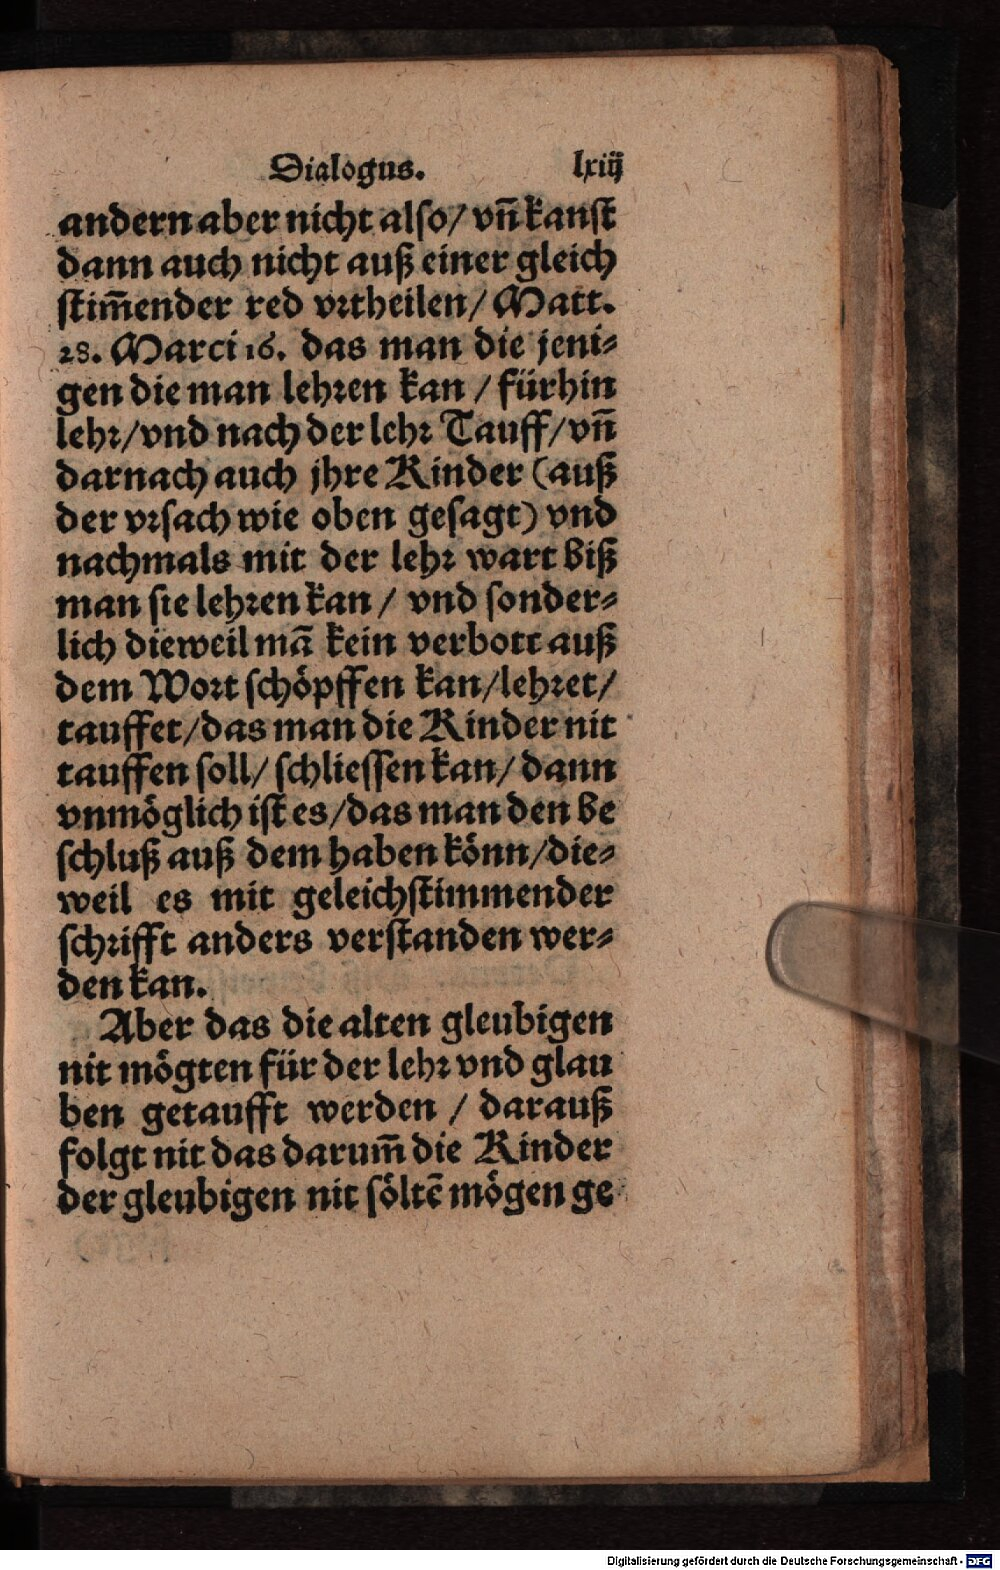 Dialogus. lxiij
andern aber nicht also/ vñ kanst
dann auch nicht auß einer gleich
stim̃ender red vrtheilen/ Matt.
28. Marci 16. das man die jeni-
gen die man lehren kan / fürhin
lehr/vnd nach der lehr Tauff/vñ
darnach auch jhre Kinder (auß
der vrsach wie oben gesagt) vnd
nachmals mit der lehr wart biß
man sie lehren kan / vnd sonder-
lich dieweil mã kein verbott auß
dem Wort schöpffen kan/lehret/
tauffet/das man die Kinder nit
tauffen soll/ schliessen kan/ dann
vnmöglich ist es/das man den be
schluß auß dem haben könn/die-
weil es mit geleichstimmender
schrifft anders verstanden wer-
den kan.
Aber das die alten gleubigen
nit mögten für der lehr vnd glau
ben getaufft werden / darauß
folgt nit das darum̃ die Kinder
der gleubigen nit söltẽ mögen ge
Digitalisierung gefördert durch die Deutsche Forschungsgemeinschaft - DFG